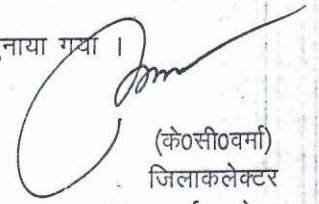 नाया गया ।
(के०सी०वर्मा)
जिलाकलेक्टर